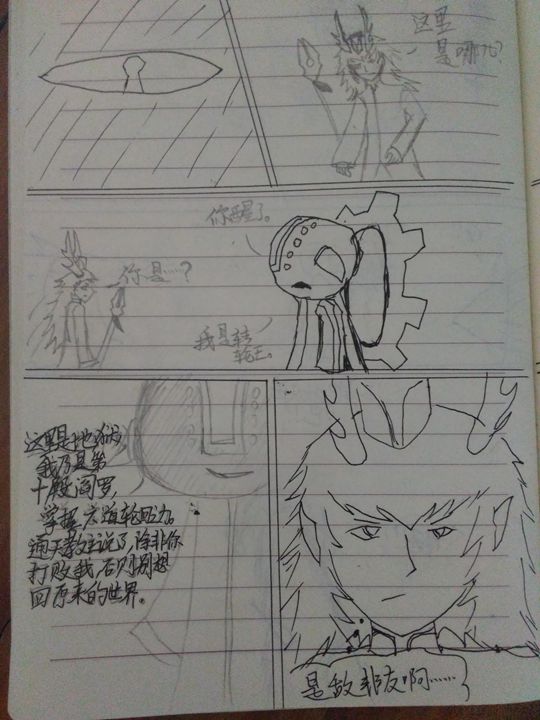 这里
是哪儿?
你醒了。
你是……?
我是转
轮王。
这里是地狱,
我乃是第
十殿阎罗,
掌握六道轮回力。
通天教主说了,除非你
打败我,否则别想
回原来的世界。
是敌非友啊……